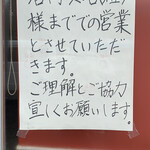 様まででの営業
とさせていただ
きます。
ご理解とご協力
宜しくお願いします。